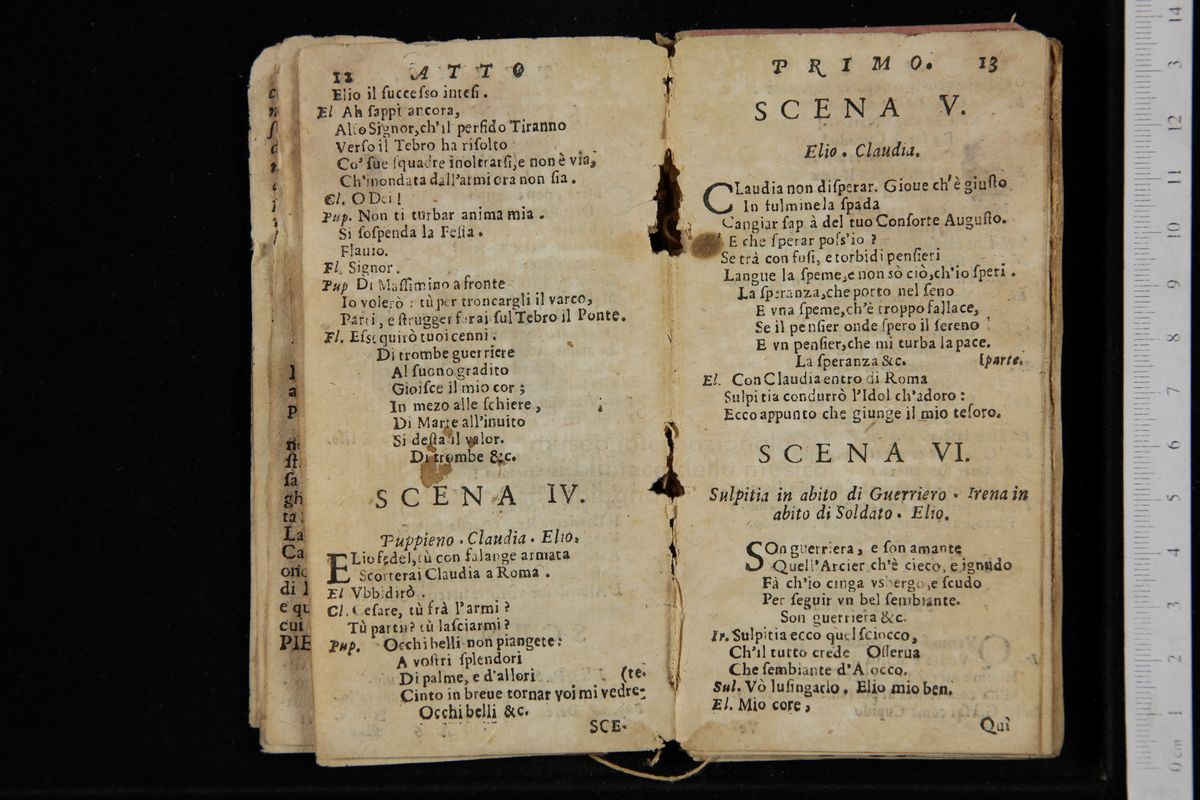 12 ATTO
Elio il succeſſo inteſi.
El Ah ſappi ancora,
Alto Signor, ch'il perfido Tiranno
Verſo il Tebro ha riſolto
Co' ſue ſquadre inoltrarſi, e non è via,
Ch'inondata dall'armi ora non ſia.
Cl. O Dei!
Pup. Non ti turbar anima mia.
Si ſoſpenda la Feſta.
Flauio.
Fl. Signor.
Pup Di Maſſimino a fronte
Io volerò: tù per troncargli il varco,
Parti, e ſtrugger farai ſul Tebro il Ponte.
Fl. Eſequirò tuoi cenni.
Di trombe guerriere
Al ſuono gradito
Gioiſce il mio cor;
In mezo alle ſchiere,
Di Marte all'inuito
Si deſta il valor.
Di trombe &c.
SCENA IV.
Puppieno. Claudia. Elio.
ELio fedel, tù con falange armata
Scorterai Claudia a Roma.
El Vbbidirò.
Cl. Ceſare, tù frà l'armi?
Tù parti? tù laſciarmi?
Pup. Occhi belli non piangete:
A voſtri ſplendori
Di palme, e d'allori (te.
Cinto in breue tornar voi mi vedre-
Occhi belli &c.
SCE-
PRIMO. 13
SCENA V.
Elio. Claudia.
CLaudia non diſperar. Gioue ch'è giuſto
In fulmine la ſpada
Cangiar ſap à del tuo Conſorte Auguſto.
E che ſperar poſs'io?
Se trà confuſi, e torbidi penſieri
Langue la ſpeme, e non sò ciò, ch'io ſperi.
La ſperanza, che porto nel ſeno
E vna ſpeme, ch'è troppo fallace,
Se il penſier onde ſpero il ſereno
E vn penſier, che mi turba la pace.
La ſperanza &c. [parte.
El. Con Claudia entro di Roma
Sulpitia condurrò l'Idol ch'adoro:
Ecco appunto che giunge il mio teſoro.
SCENA VI.
Sulpitia in abito di Guerriero. Irena in
abito di Soldato. Elio.
SOn guerriera, e ſon amante
Quell'Arcier ch'è cieco, e ignudo
Fà ch'io cinga vsbergo, e ſcudo
Per ſeguir vn bel ſembiante.
Son guerriera &c.
Ir. Sulpitia ecco quel ſciocco,
Ch'il tutto crede Oſſerua
Che ſembiante d'Alocco.
Sul. Vò luſingarlo. Elio mio ben.
El. Mio core,
Quì